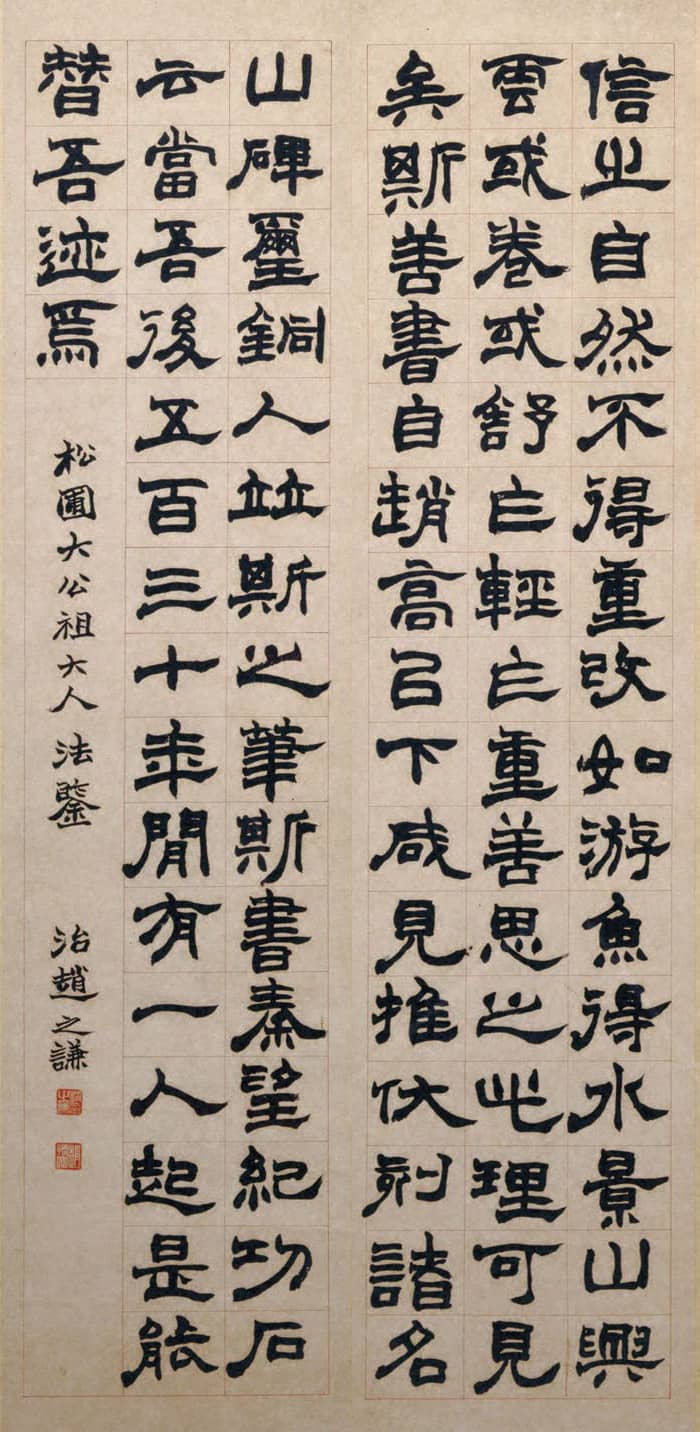 信之自然不得重改如游魚得水景山興
雲或卷或舒乍輕乍重善思之此理可見
矣斯善書自趙高㠯下咸見推伏刻諸名
山碑璽銅人竝斯之筆斯書秦望紀功石
云當吾後五百三十年閒有一人起是能
替吾迹焉
松圃大公祖大人法鑒 治趙之謙